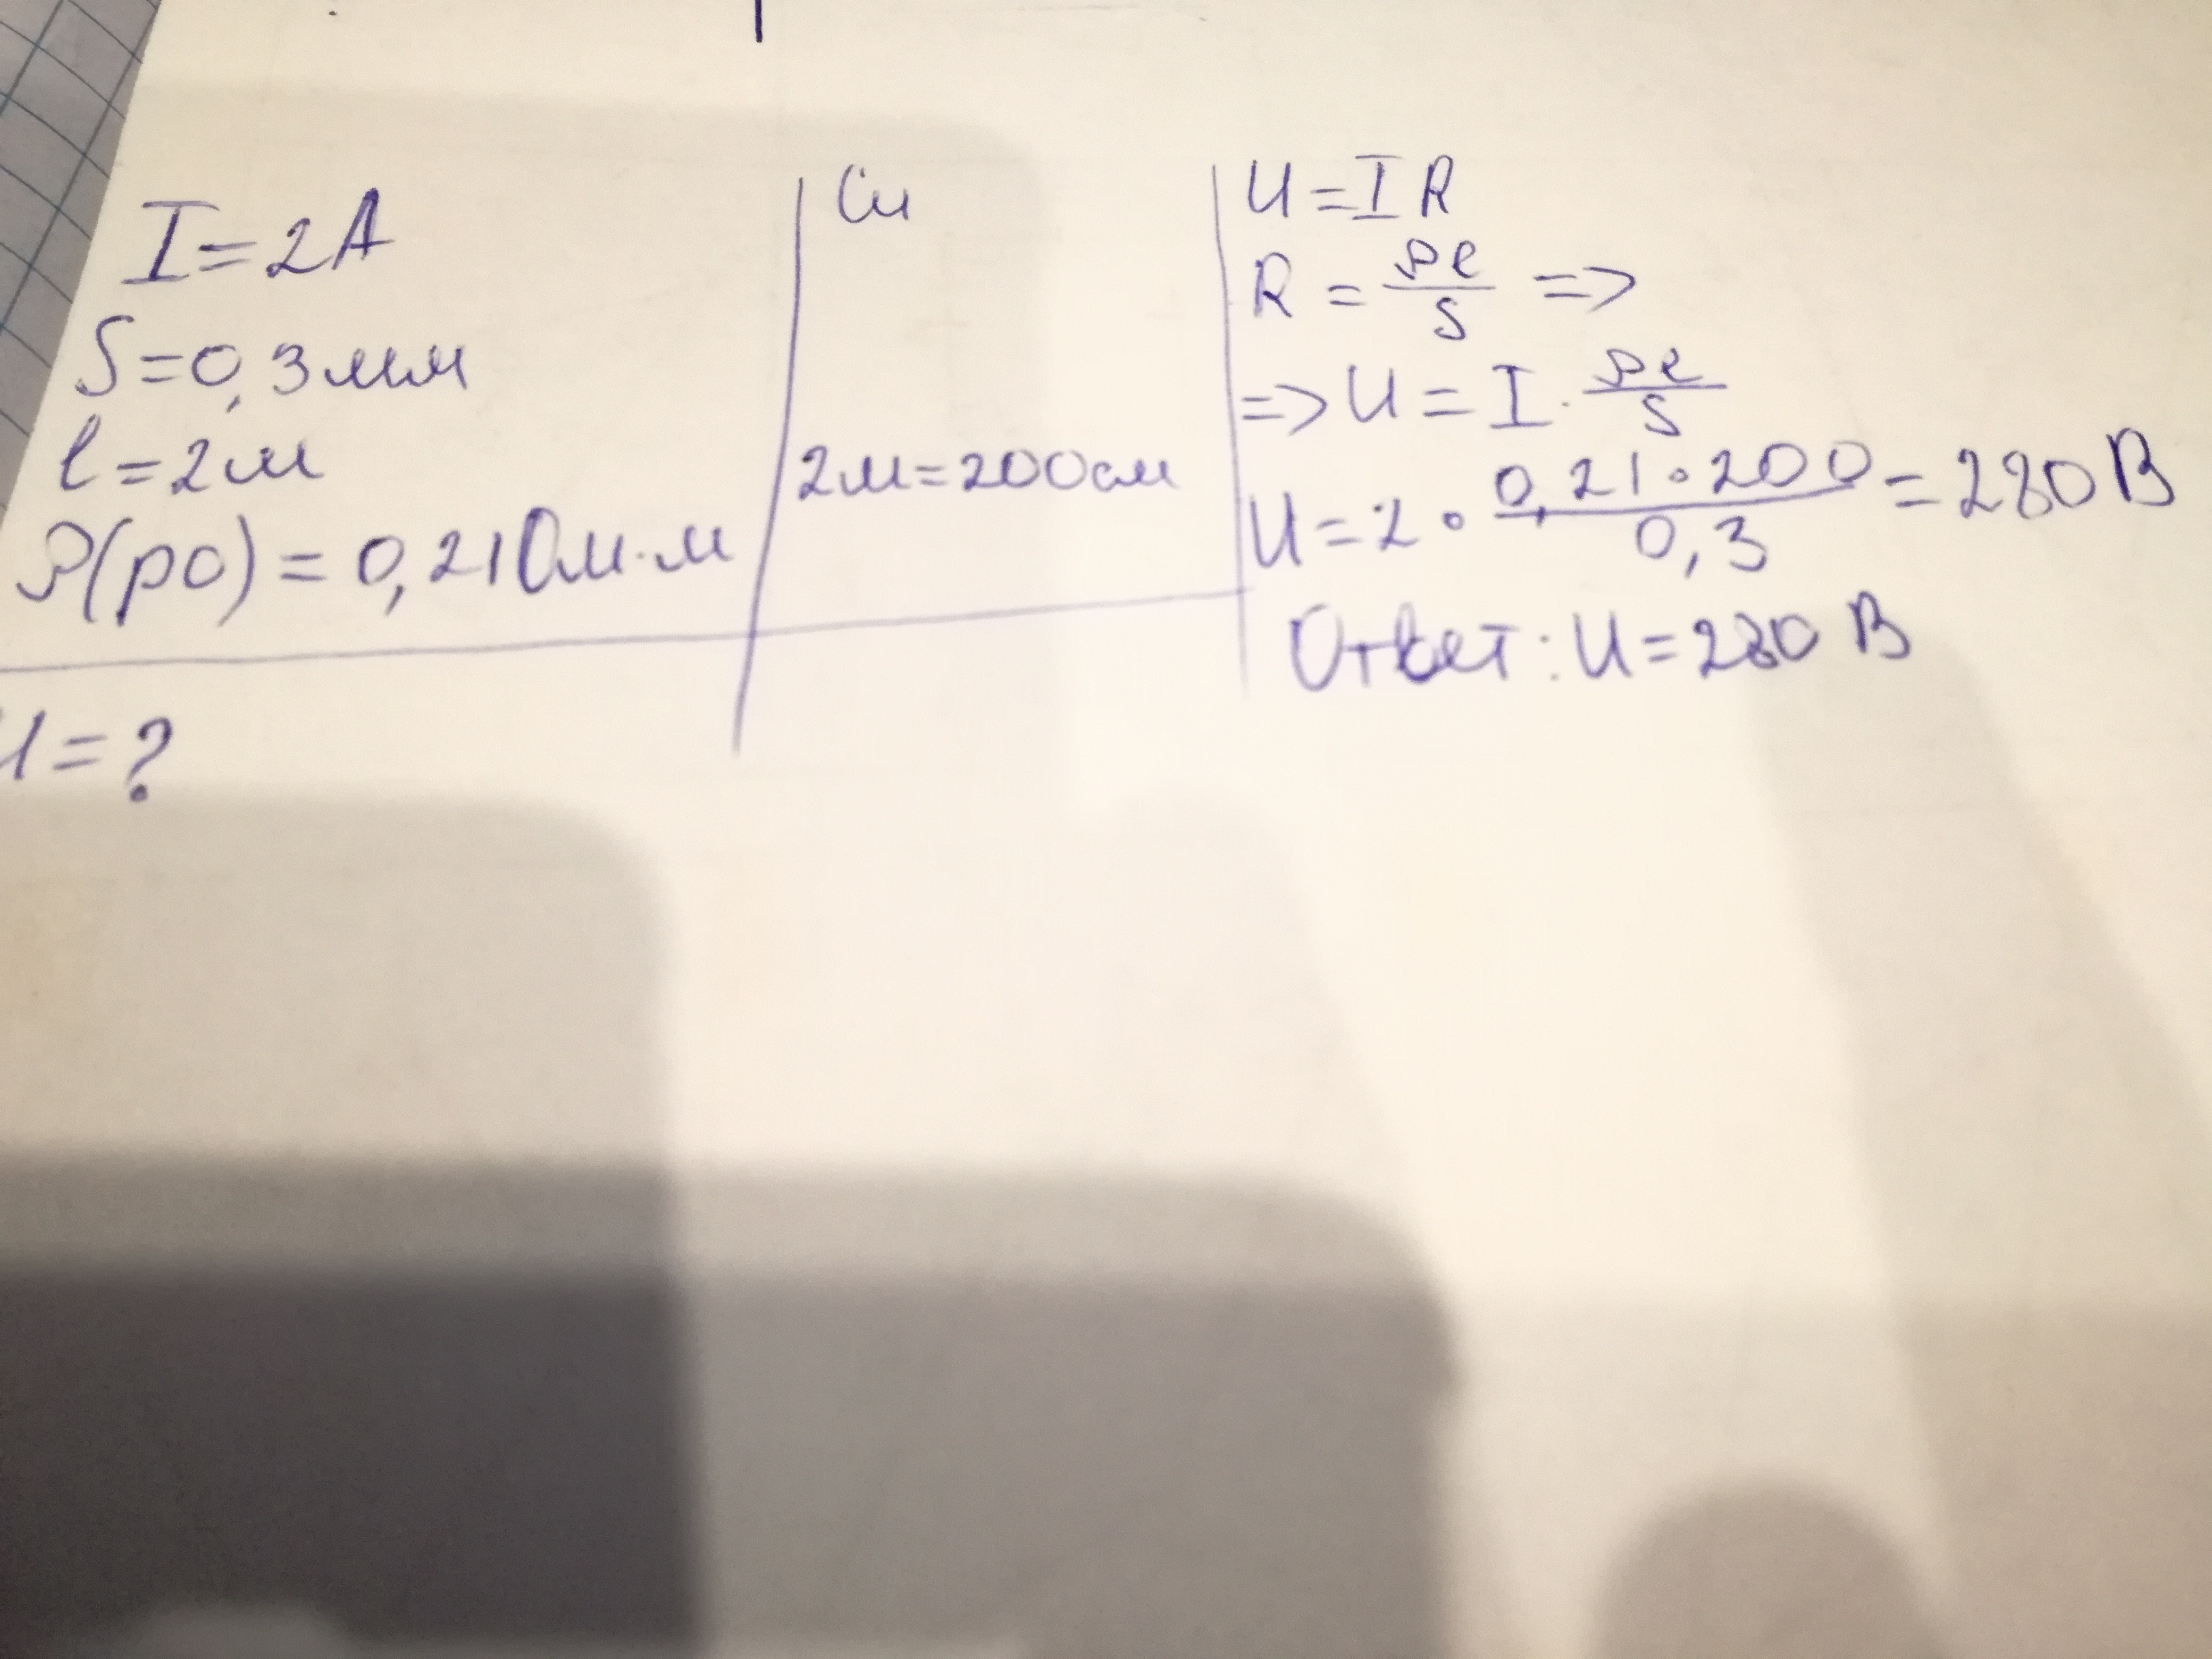 I=2А
S=0,3мм
l=2м
ρ(ро)=0,21Ом·м
U=?
Си
2м=200см
U=IR
R=ρl/S =>
=> U=I·ρl/S
U=2·0,21·200/0,3=280В
Ответ: U=280 В